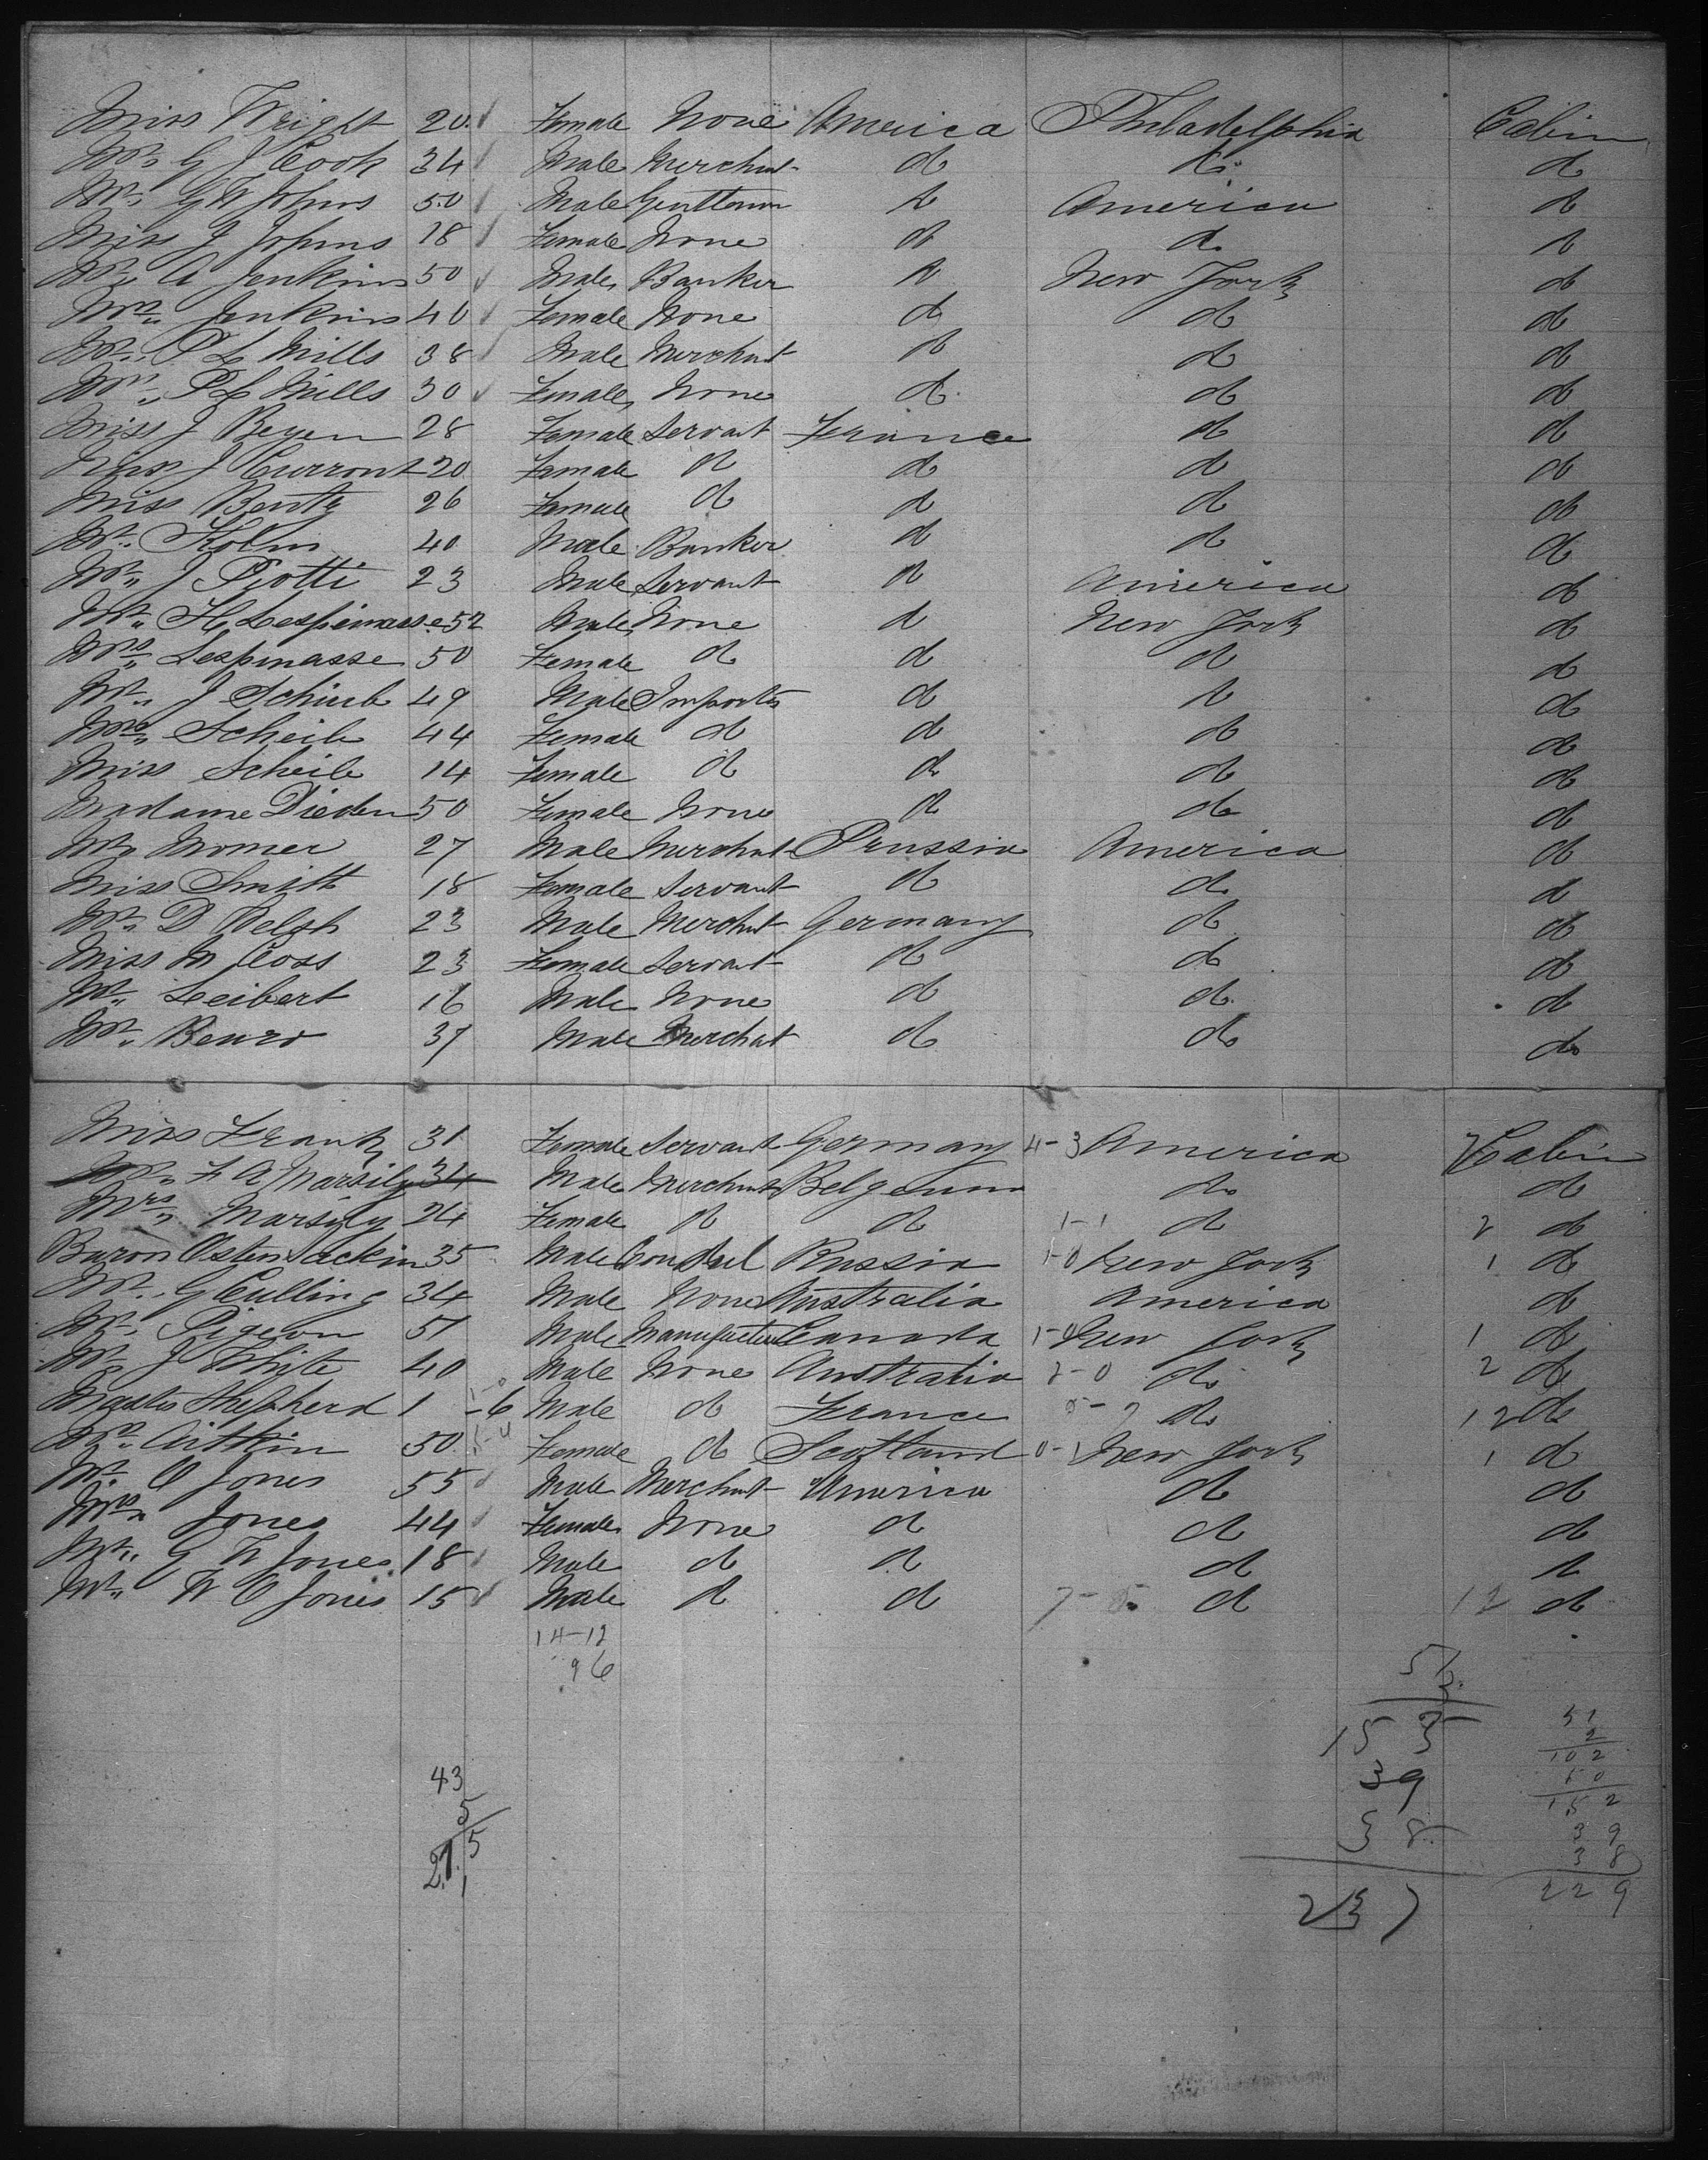 Miss Wright 20 Female None America Philadelphia Cabin
Mr. G J Cook 34 Male Merchnt do do do
Mr. G W Johns 50 Male Genttman do America do
Miss J Johns 18 Female None do do do
Mr. A Jenkins 50 Male Banker do New York do
Mrs. Jenkins 40 Female None do do do
Mr. P L Mills 38 Male Merchnt do do do
Mrs. P L Mills 30 Female None do do do
Miss J Beyen 28 Female Servant France do do
Miss J Curront 20 Female do do do do
Miss Bentz 26 Female do do do do
Mr. Kolm 40 Male Banker do do do
Mr. J Piotti 23 Male Servant do America do
Mr. H Lespinasse 52 Male None do New York do
Mrs. Lespinasse 50 Female do do do do
Mr. J Scheib 49 Male Importer do do do
Mrs. Scheib 44 Female do do do do
Miss Scheib 14 Female do do do do
Madame Dieden 50 Female None do do do
Mr. Momer 27 Male Merchnt Prussia America do
Miss Smith 18 Female Servant do do do
Mr. D Welsh 23 Male Merchnt Germany do do
Miss M Coss 23 Female Servant do do do
Mr. Leibert 16 Male None do do do
Mr. Benro 37 Male Merchat do do do
Miss Frank 31 Female Servant Germany 4-3 America Cabin
Mr. F A Marsily 34 Male Merchnt Belgeum do do
Mrs. Marsily 24 Female do do 1-1 do 2 do
Baron Osten Sackin 35 Male Consul Russia 1-0 New York 1 do
Mr. G Culling 34 Male None Australia America do
Mr. Pigeon 51 Male Manufacturer Canada 1-0 New York 1 do
Mr. J White 40 Male None Australia 2-0 do 2 do
Master Shepherd 1 -6 Male do France do 12 do
Mrs. Aitkin 30 Female do Scotland 0-1 New York 1 do
Mr. O Jones 55 Male Merchnt America do do
Mrs. Jones 44 Female None do do do
Mr. G W Jones 18 Male do do do do
Mr. W O Jones 15 Male do do 7- do 12 do
14-12
96
51
2
102
50
152
39
38
229
43
5
215
39
38
237